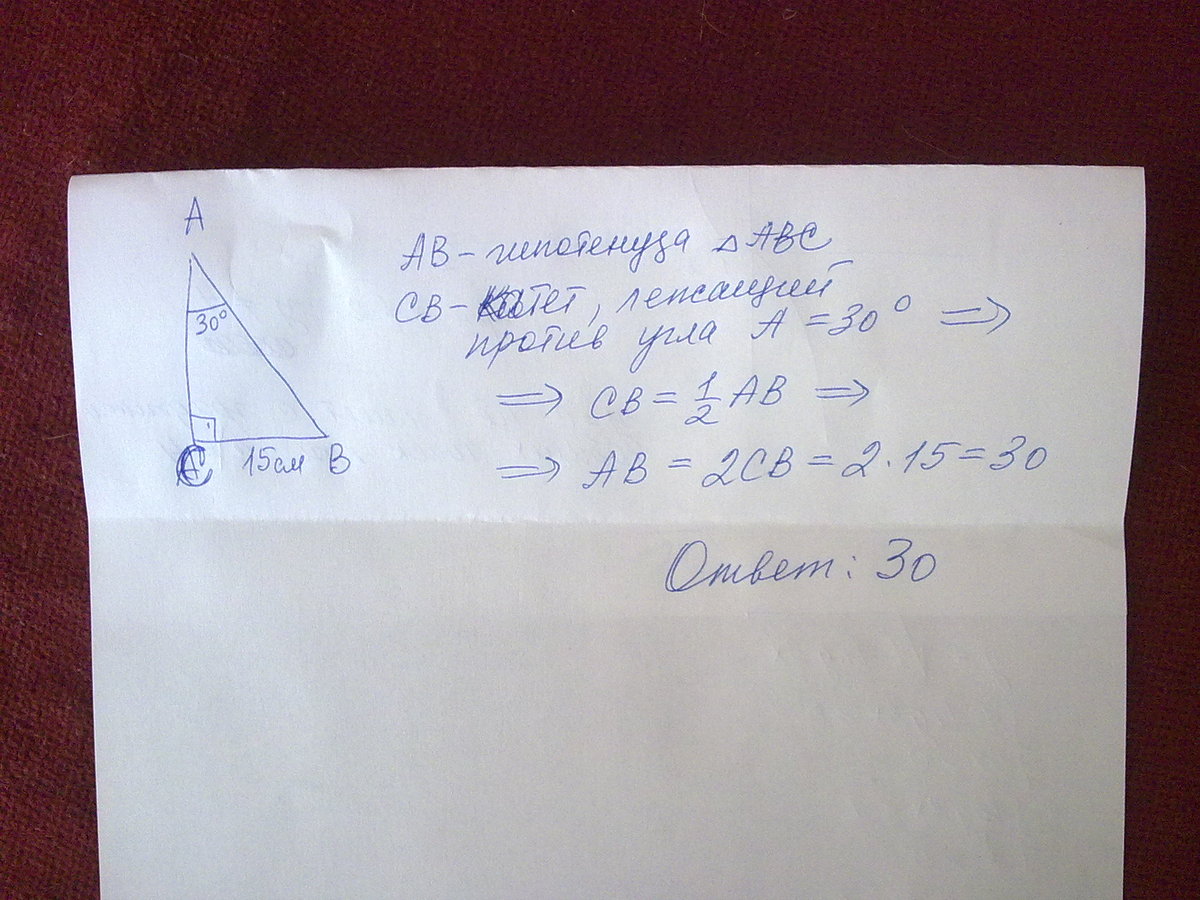 A
30°
C 15см B
AB – гипотенуза △ABC
CB – катет, лежащий
против угла A = 30° ⇒
⇒ CB = 1/2 AB ⇒
⇒ AB = 2CB = 2·15 = 30
Ответ: 30